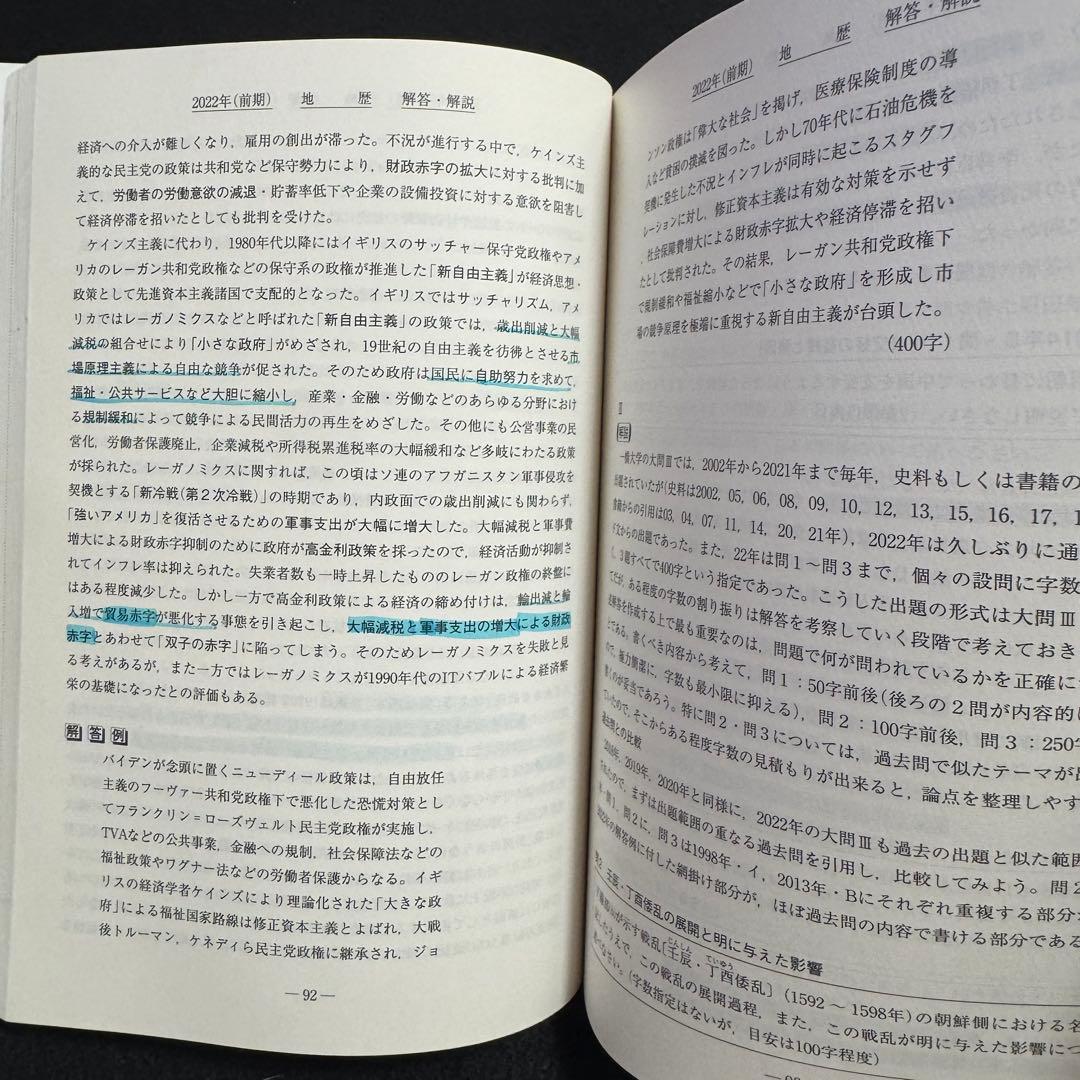 2022年(前期) 地 歴 解答・解説
経済への介入が難しくなり，雇用の創出が滞った。不況が進行する中で，ケインズ主
義的な民主党の政策は共和党など保守勢力により，財政赤字の拡大に対する批判に加
えて，労働者の労働意欲の減退・貯蓄率低下や企業の設備投資に対する意欲を阻害し
て経済停滞を招いたとしても批判を受けた。
ケインズ主義に代わり，1980年代以降にはイギリスのサッチャー保守党政権やアメ
リカのレーガン共和党政権などの保守系の政権が推進した「新自由主義」が経済思想・
政策として先進資本主義諸国で支配的となった。イギリスではサッチャリズム，アメ
リカではレーガノミクスなどと呼ばれた「新自由主義」の政策では，歳出削減と大幅
減税の組合せにより「小さな政府」がめざされ，19世紀の自由主義を彷彿とさせる市
場原理主義による自由な競争が促された。そのため政府は国民に自助努力を求めて，
福祉・公共サービスなど大胆に縮小し，産業・金融・労働などのあらゆる分野におけ
る規制緩和によって競争による民間活力の再生をめざした。その他にも公営事業の民
営化，労働者保護廃止，企業減税や所得税累進税率の大幅緩和など多岐にわたる政策
が採られた。レーガノミクスに関すれば，この頃はソ連のアフガニスタン軍事侵攻を
契機とする「新冷戦(第２次冷戦)」の時期であり，内政面での歳出削減にも関わらず，
「強いアメリカ」を復活させるための軍事支出が大幅に増大した。大幅減税と軍事費
増大による財政赤字抑制のために政府が高金利政策を採ったので，経済活動が抑制さ
れてインフレ率は抑えられた。失業者数も一時上昇したもののレーガン政権の終盤に
はある程度減少した。しかし一方で高金利政策による経済の締め付けは，輸出減と輸
入増で貿易赤字が悪化する事態を引き起こし，大幅減税と軍事支出の増大による財政
赤字とあわせて「双子の赤字」に陥ってしまう。そのためレーガノミクスを失敗と見
る考えがあるが，また一方ではレーガノミクスが1990年代のITバブルによる経済繁
栄の基礎になったとの評価もある。
解答例
バイデンが念頭に置くニューディール政策は，自由放任
主義のフーヴァー共和党政権下で悪化した恐慌対策とし
てフランクリン＝ローズヴェルト民主党政権が実施し，
TVAなどの公共事業，金融への規制，社会保障法などの
福祉政策やワグナー法などの労働者保護からなる。イギ
リスの経済学者ケインズにより理論化された「大きな政
府」による福祉国家路線は修正資本主義とよばれ，大戦
後トルーマン，ケネディら民主党政権に継承され，ジョ
―92―
2022年(前期) 地 歴 解答・解説
ンソン政権は「偉大な社会」を掲げ，医療保険制度の導
入など貧困の撲滅を図った。しかし70年代に石油危機を
契機に発生した不況とインフレが同時に起こるスタグフ
レーションに対し，修正資本主義は有効な対策を示せず
，社会保障費増大による財政赤字拡大や経済停滞を招い
たとして批判された。その結果，レーガン共和党政権下
で規制緩和や福祉縮小などで「小さな政府」を形成し市
場の競争原理を極端に重視する新自由主義が台頭した。
(400字)
Ⅱ
解説
一橋大学の大問Ⅲでは，2002年から2021年まで毎年，史料もしくは書籍の
出題されていたが(史料は2002, 05, 06, 08, 09, 10, 12, 13, 15, 16, 17, 1
書籍からの引用は03, 04, 07, 11, 14, 20, 21年)，2022年は久しぶりに通
ド文からの出題であった。また，22年は問１～問３まで，個々の設問に字数
し，３題すべてで400字という指定であった。こうした出題の形式は大問Ⅲ
てだが，ある程度の字数の割り振りは解答を考察していく段階で考えておき
述解答を作成する上で最も重要なのは，問題で何が問われているかを正確に
とである。書くべき内容から考えて，問１：50字前後(後ろの２問が内容的に
ので，極力簡潔に，字数も最小限に抑える)，問２：100字前後，問３：250字
書くのが妥当であろう。特に問２・問３については，過去問で似たテーマが出
ていたので，そこからある程度字数の見積もりが出来ると，論点を整理しやす
過去問との比較
2018年，2019年，2020年と同様に，2022年の大問Ⅲも過去の出題と似た範囲
れたので，まずは出題範囲の重なる過去問を引用し，比較してみよう。問２
年・問１，問２に，問３は1998年・イ，2013年・Bにそれぞれ重複する部分が
2022年の解答例に付した網掛け部分が，ほぼ過去問の内容で書ける部分である
問２ 壬辰・丁酉倭乱の展開と明に与えた影響
が示す戦乱〔壬辰・丁酉倭乱〕(1592～1598年)の朝鮮側における名
したうえで，この戦乱の展開過程，また，この戦乱が明に与えた影響につ
べなさい。(字数指定はないが，目安は100字程度)